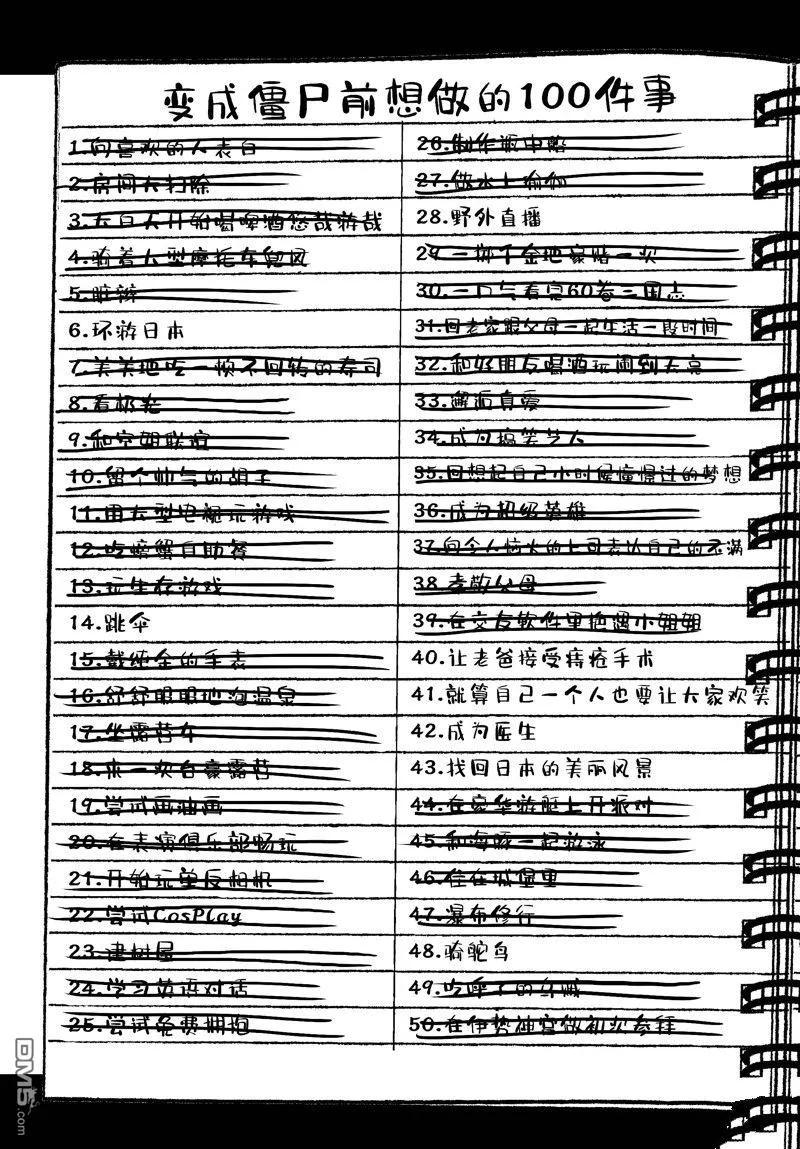 变成僵尸前想做的100件事
1.向喜欢的人表白
2.房间大扫除
3.大白天开始喝啤酒悠哉游哉
4.骑着大型摩托车兜风
5.脏辫
6.环游日本
7.美美地吃一顿不回转的寿司
8.看极光
9.和空姐联谊
10.留个帅气的胡子
11.用大型电视玩游戏
12.吃螃蟹自助餐
13.玩生存游戏
14.跳伞
15.戴纯金的手表
16.舒舒服服地泡温泉
17.坐露营车
18.来一次自豪露营
19.尝试画油画
20.在表演俱乐部畅玩
21.开始玩单反相机
22.尝试CosPlay
23.建树屋
24.学习英语对话
25.尝试免费拥抱
26.制作瓶中船
27.做水上瑜伽
28.野外直播
29.一掷千金地豪赌一次
30.一口气看完60卷三国志
31.回老家跟父母一起生活一段时间
32.和好朋友喝酒玩闹到天亮
33.邂逅真爱
34.成为搞笑艺人
35.回想起自己小时候憧憬过的梦想
36.成为超级英雄
37.向令人恼火的上司表达自己的不满
38.孝敬父母
39.在交友软件里艳遇小姐姐
40.让老爸接受痔疮手术
41.就算自己一个人也要让大家欢笑
42.成为医生
43.找回日本的美丽风景
44.在豪华游艇上开派对
45.和海豚一起游泳
46.住在城堡里
47.瀑布修行
48.骑鸵鸟
49.吃摩了的乌贼
50.在伊势神宫做初次参拜
DM5.com